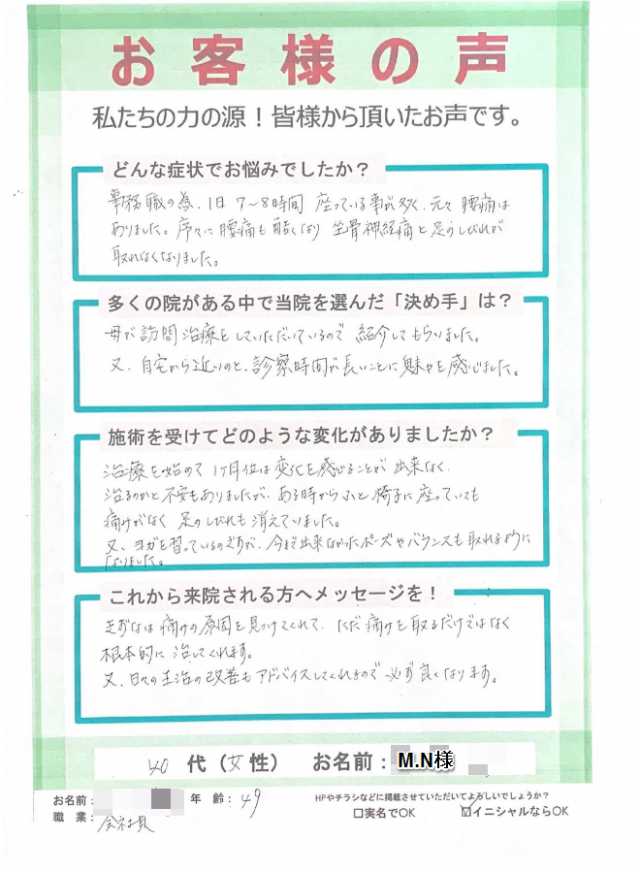 お客様の声
私たちの力の源！皆様から頂いたお声です。
どんな症状でお悩みでしたか？
事務職の為、1日 7〜8時間 座っている事が多く、元々腰痛は
ありました。序々に腰痛も酷くなり 坐骨神経痛と足のしびれが
取れなくなりました。
多くの院がある中で当院を選んだ「決め手」は？
母が訪問治療をしていただいているので 紹介してもらいました。
又、自宅から近いのと、診察時間が長いことに魅力を感じました。
施術を受けてどのような変化がありましたか？
治療を始めて 1ヶ月位は変化を感じることが 出来なく、
治るのかと不安もありましたが、ある時からふと椅子に座っていても
痛みがなく 足のしびれも消えていました。
又、ヨガを習っているのですが、今まで出来なかったポーズやバランスも取れるように
なりました。
これから来院される方へメッセージを！
まずは痛みの原因を見つけてくれて、ただ痛みを取るだけではなく
根本的に治してくれます。
又、日々の生活の改善もアドバイスしてくれるので 必ず良くなります。
40 代（女性） お名前：M.N様
お名前： 年 齢：49
職 業：会社員
HPやチラシなどに掲載させていただいてよろしいでしょうか？
□実名でOK ☑イニシャルならOK